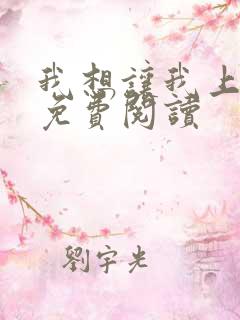 我想讓我上
免費閱讀
劉宇光